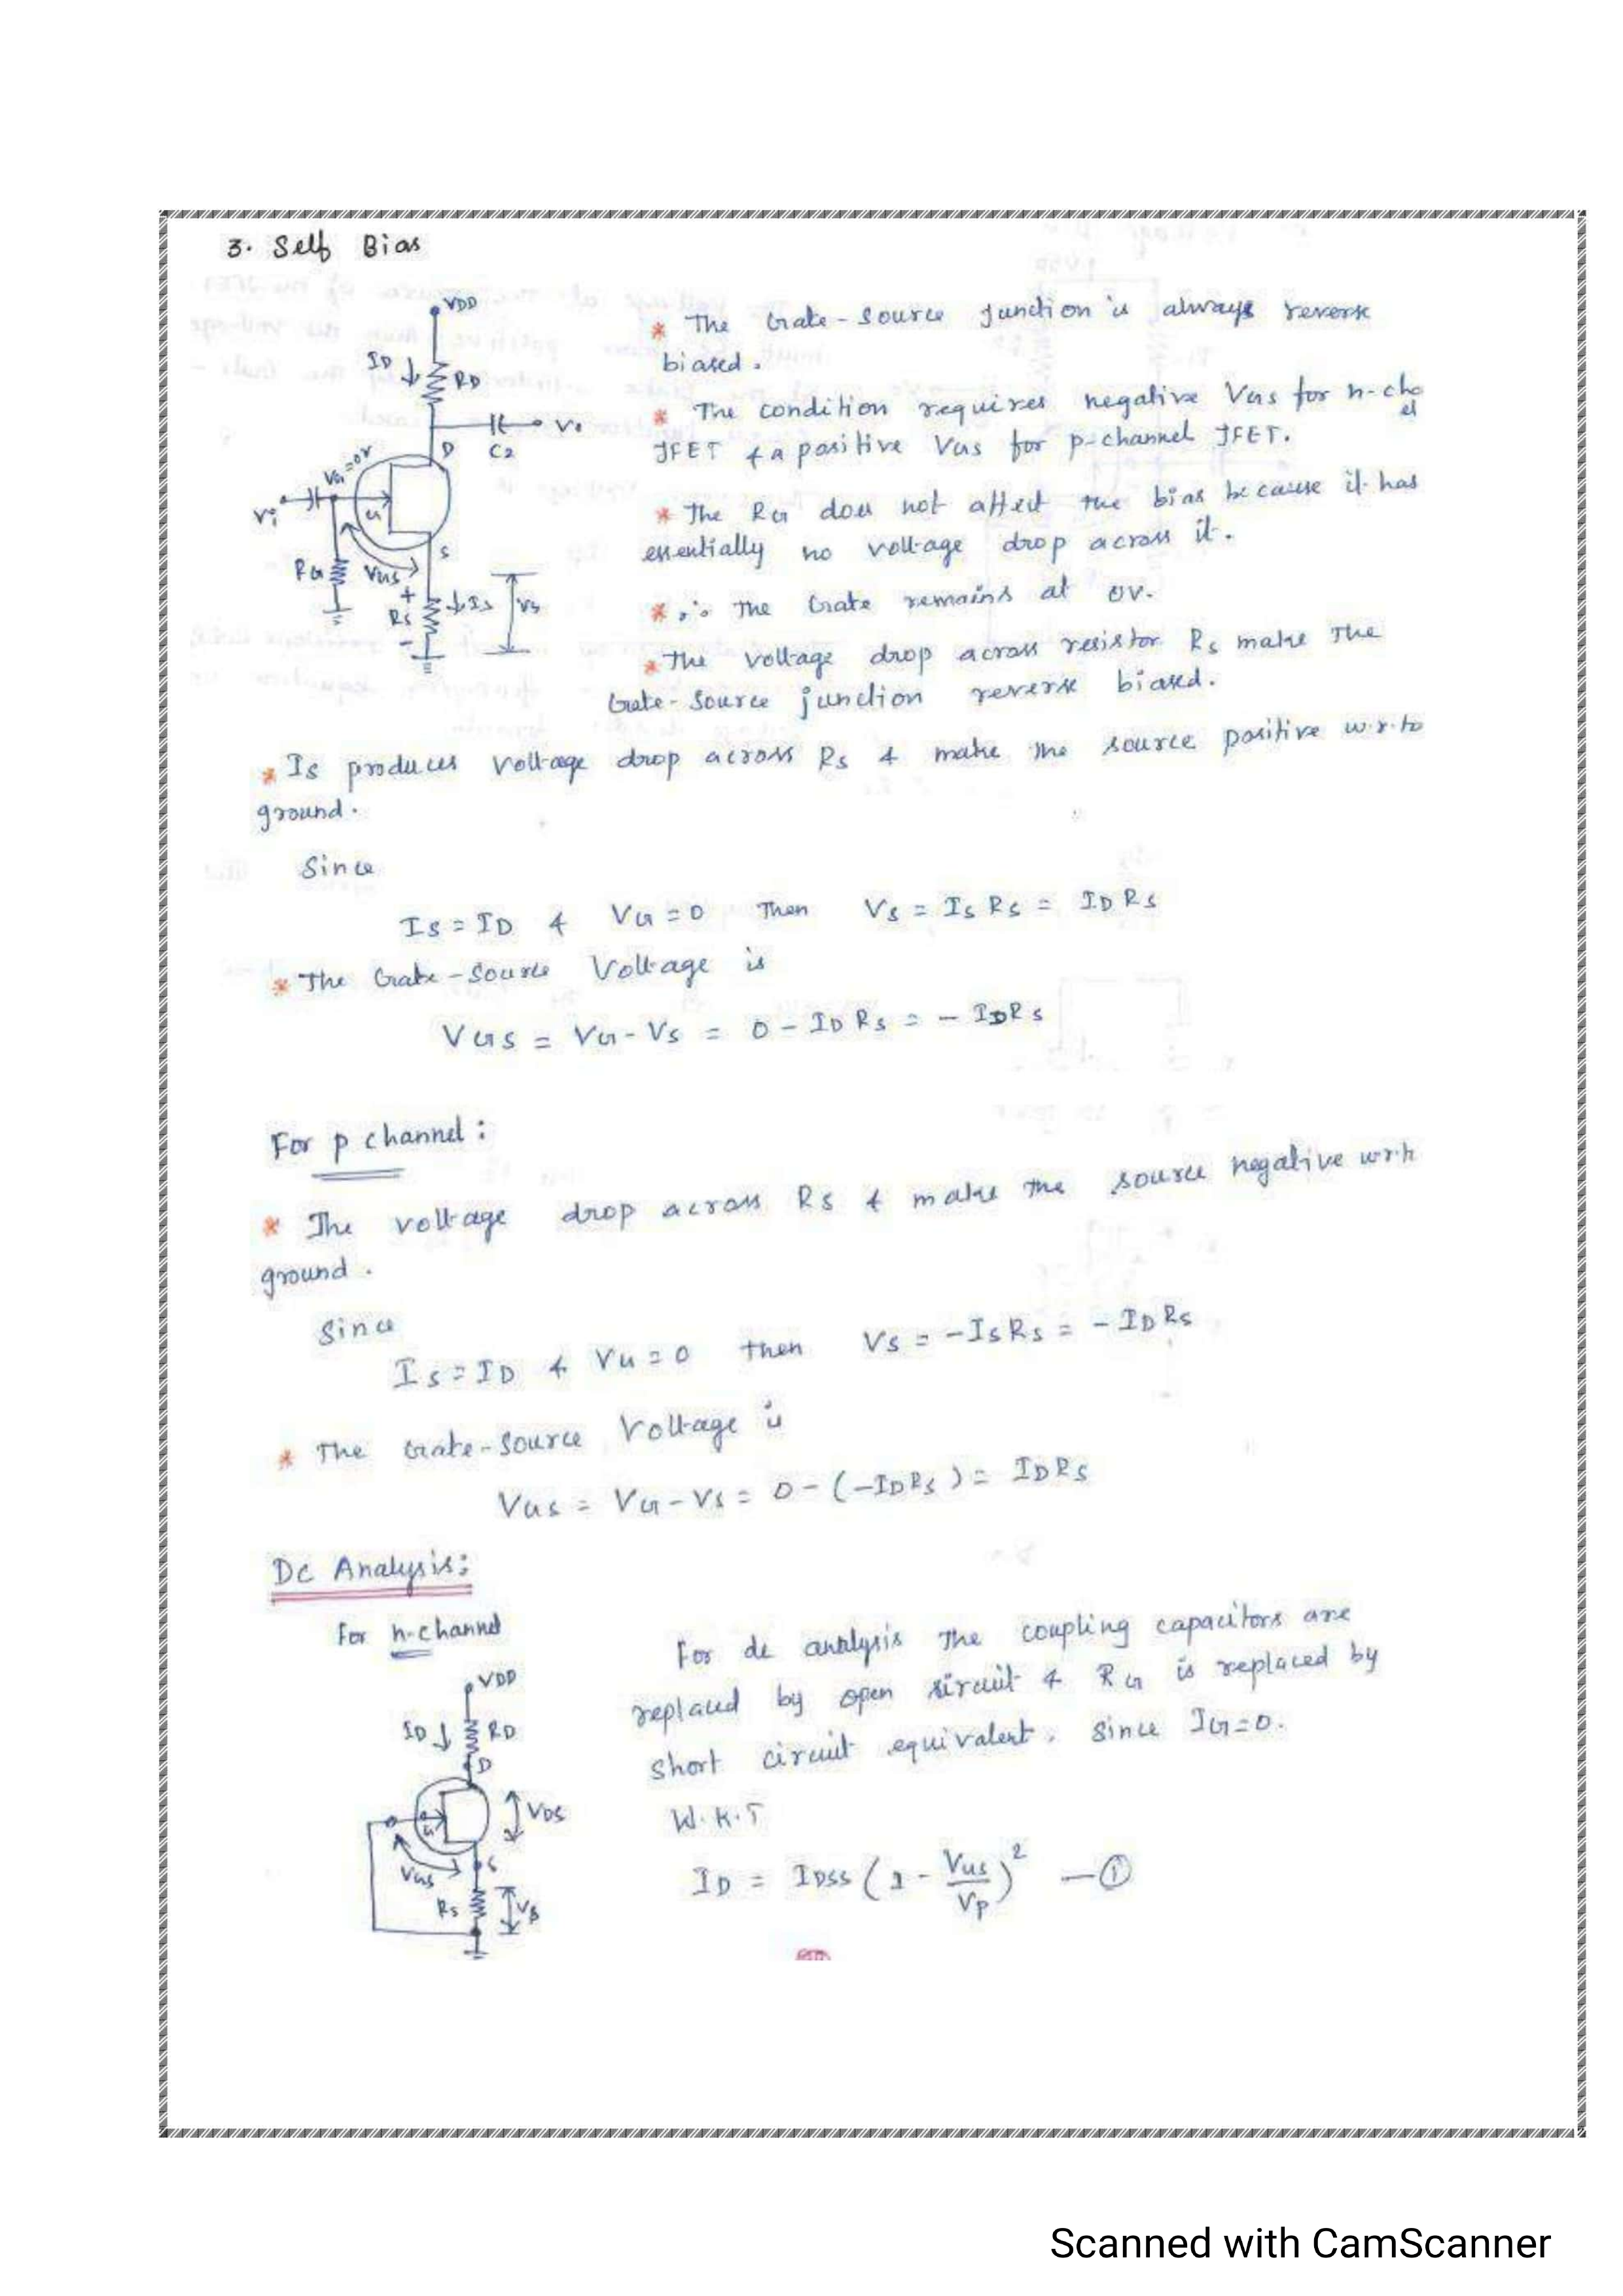 3. Self Bias
VDD
ID
RD
D
C2
Vo
VG=0V
Vi
G
S
RG
VGS
+
Rs
-
Is
Vs
* The Gate-Source junction is always reverse
biased.
* The condition requires negative VGS for n-cha
el
JFET & a positive VGS for p-channel JFET.
* The RG does not affect the bias because it has
essentially no voltage drop across it.
* ∴ The Gate remains at 0V.
* The voltage drop across resistor Rs make the
Gate-Source junction reverse biased.
* Is produces voltage drop across Rs & make the source positive w.r.to
ground.
Since
IS = ID & VG = 0 Then VS = IS RS = ID RS
* The Gate-Source Voltage is
VGS = VG - VS = 0 - ID RS = - ID RS
For p channel:
* The voltage drop across Rs & make the source negative w.r.h
ground.
Since
IS = ID & VG = 0 then VS = -IS RS = - ID RS
* The Gate-Source Voltage is
VGS = VG - VS = 0 - (-ID RS) = ID RS
DC Analysis:
For n-channel
VDD
ID
RD
D
G
VDS
VGS
S
Rs
VS
For dc analysis the coupling capacitors are
replaced by open circuit & RG is replaced by
short circuit equivalent, since IG=0.
W.K.T
ID = IDSS (1 - VGS/VP)² — ①
Scanned with CamScanner